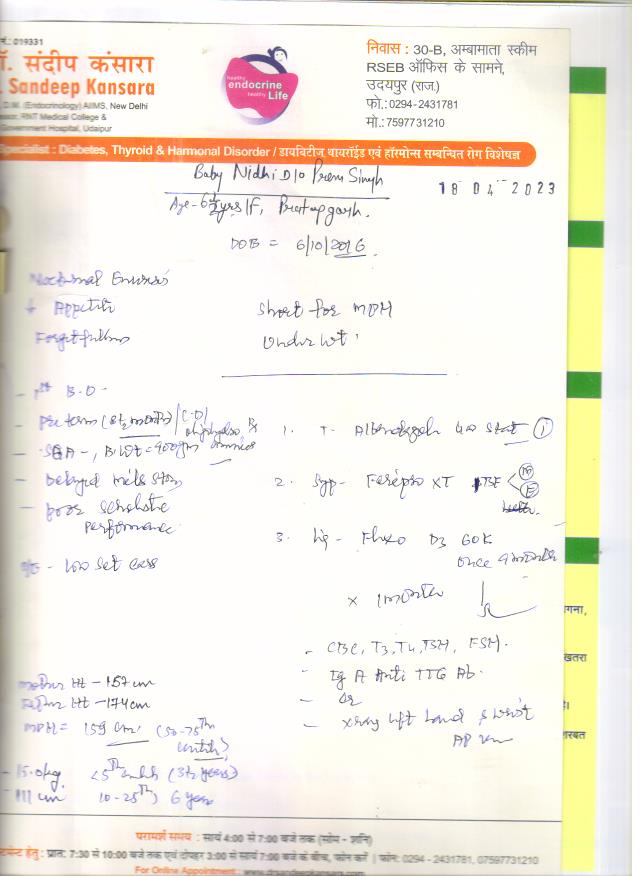 नं.: 019331
डॉ. संदीप कंसारा
Sandeep Kansara
D.M. (Endocrinology) AIIMS, New Delhi
RNT Medical College &
Government Hospital, Udaipur
healthy
endocrine
healthy Life
निवास : 30-B, अम्बामाता स्कीम
RSEB ऑफिस के सामने,
उदयपुर (राज.)
फो.:0294-2431781
मो.:7597731210
Specialist : Diabetes, Thyroid & Harmonal Disorder / डायबिटीज, थायरॉईड एवं हॉरमोन्स सम्बन्धित रोग विशेषज्ञ
Baby Nidhi D/O Prem Singh
18 04 2023
Age - 6½yrs/F, Pratapgarh.
DOB = 6/10/2016
Nocturnal Enuresis
↓ Appetite
Short for MPH
Forgetfulness
Under wt
- 1st B.O -
- Pre term (8½ months) / C.D /
oligohydramnios
- SGA -, B.Wt = 900gm
- Delayed milestone
- poor scholastic
performance
O/E - Low set ears
Rx
1. T. Albendazole stat ①
2. Syp - XT 1TSF
3. Liq - D3 60K
once a month
x 1 month
- CBC, T3, T4, TSH, FSH.
- Ig A Anti TTG Ab.
- xray left hand & wrist
AP view
mother Ht - 157 cm
Father Ht - 174cm
MPH = 159 cm (50-75th
centile)
- 15.0kg <5th (3½ years)
- 111 cm 10-25th) 6 years
गना,
खतरा
है।
शरबत
परामर्श समय : सायं 4:00 से 7:00 बजे तक (सोम - शनि)
हेतु : प्रात: 7:30 से 10:00 बजे तक एवं दोपहर 3:00 से सायं 7:00 बजे के बीच, फोन करें | फोन: 0294 - 2431781, 07597731210
For Online Appointment : www.drsandeepkansara.com